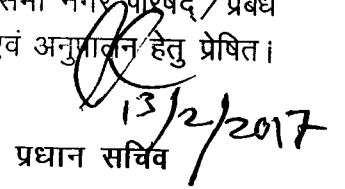 सभी नगर परिषद् / प्रबंध
एवं अनुपालन हेतु प्रेषित।
13/2/2017
प्रधान सचिव